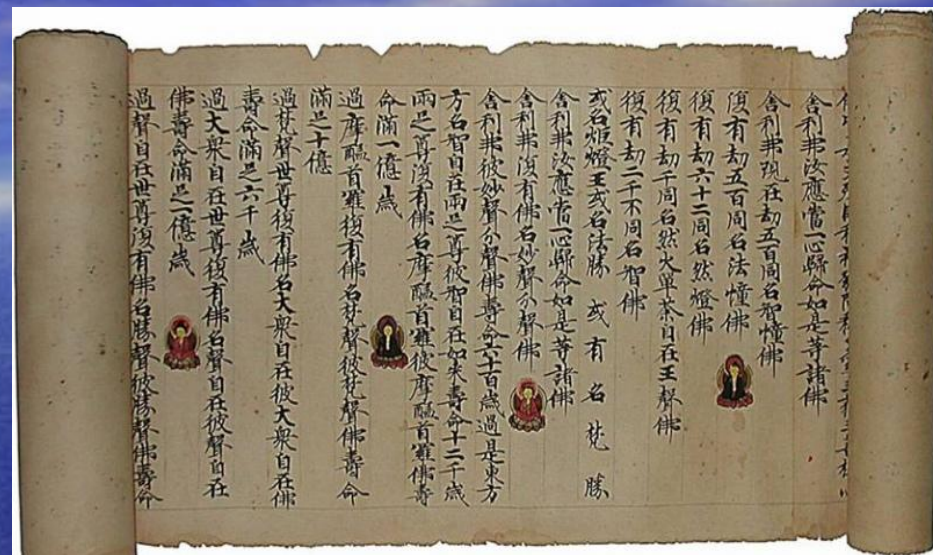 舍利弗汝應當一心歸命如是等諸佛
舍利弗現在劫五百同名智幢佛
復有劫五百同名法幢佛
復有劫六十二同名然燈佛
復有劫千同名然火單荼自在王聲佛
復有劫二千不同名智佛
或名炬燈王或名法勝 或有名梵勝
舍利弗汝應當一心歸命如是等諸佛
舍利弗復有佛名妙聲分聲佛
舍利弗彼妙聲分聲佛壽命六十百歲過是東方
方名智自在兩足之尊彼智自在如來壽命十二千歲
兩足之尊復有佛名摩醯首羅彼摩醯首羅佛壽
命滿一億歲
過摩醯首羅復有佛名梵聲彼梵聲佛壽命
滿足十億
過梵聲世尊復有佛名大衆自在彼大衆自在佛
壽命滿足六千歲
過大衆自在世尊復有佛名聲自在彼聲自在
佛壽命滿足一億歲
過聲自在世尊復有佛名勝聲彼勝聲佛壽命